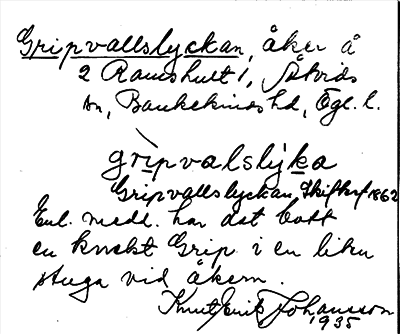 Gripvallslyckan, åker å
2 Ramshult 1, Åtvids
sn, Bankekinds hd, Ögl. l.
grìpvalslýka
Gripvallslyckan, Skifteskf 1862
Enl. medd. har det bott
en knekt Grip i en liten
stuga vid åkern.
Knut Erik Johansson
1935